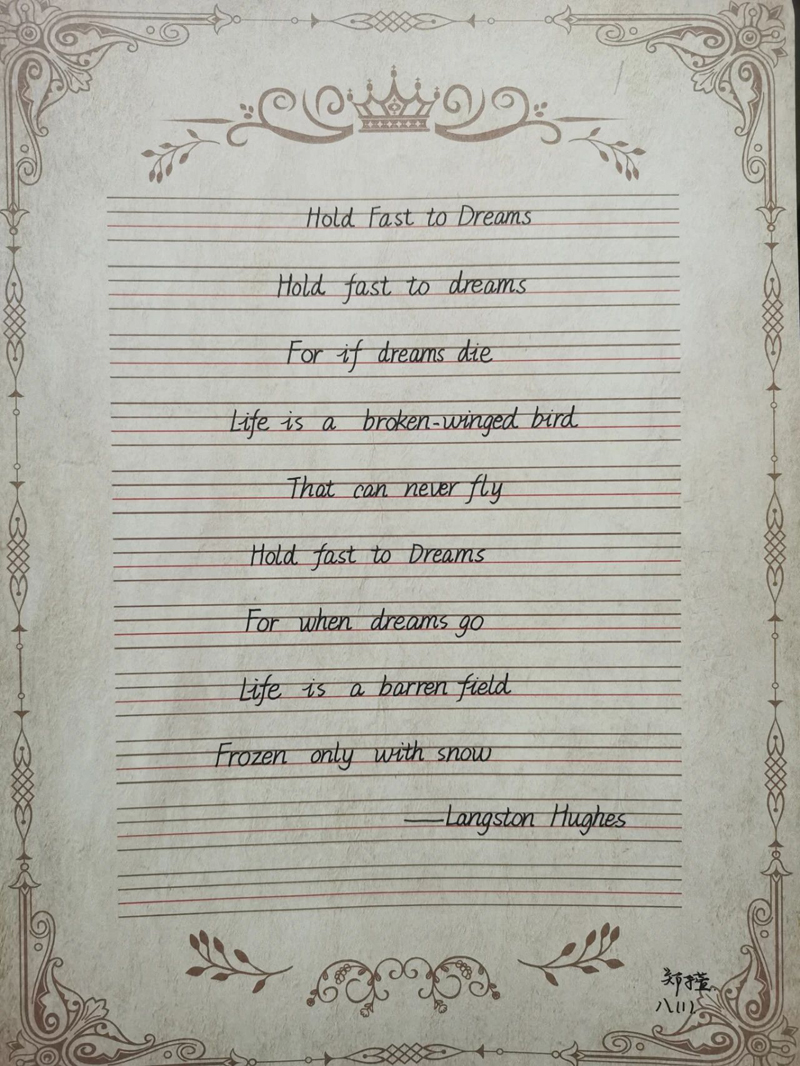 Hold Fast to Dreams
Hold fast to dreams
For if dreams die
Life is a broken-winged bird
That can never fly
Hold fast to Dreams
For when dreams go
Life is a barren field
Frozen only with snow
——Langston Hughes
八(1)